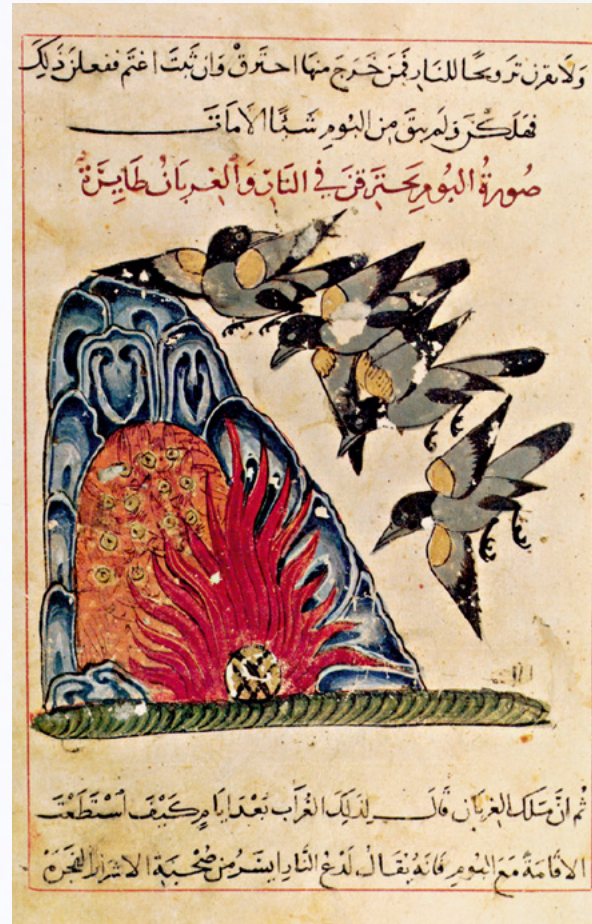 ولا يقرن ترويحًا للنار فمن خرج منها احترق وان ثبت اغتم ففعلن ذلك
فهلكن ولم يبق من البوم شيئا الا مات
صورةُ البوم يحترقن في النار والغربان طايرة
ثم ان ملك الغربان قال لذلك الغراب بعد ايام كيف استطعت
الاقامة مع البوم فانه يقال لدغ النار ايسر من صُحبة الاشرار الفجرة